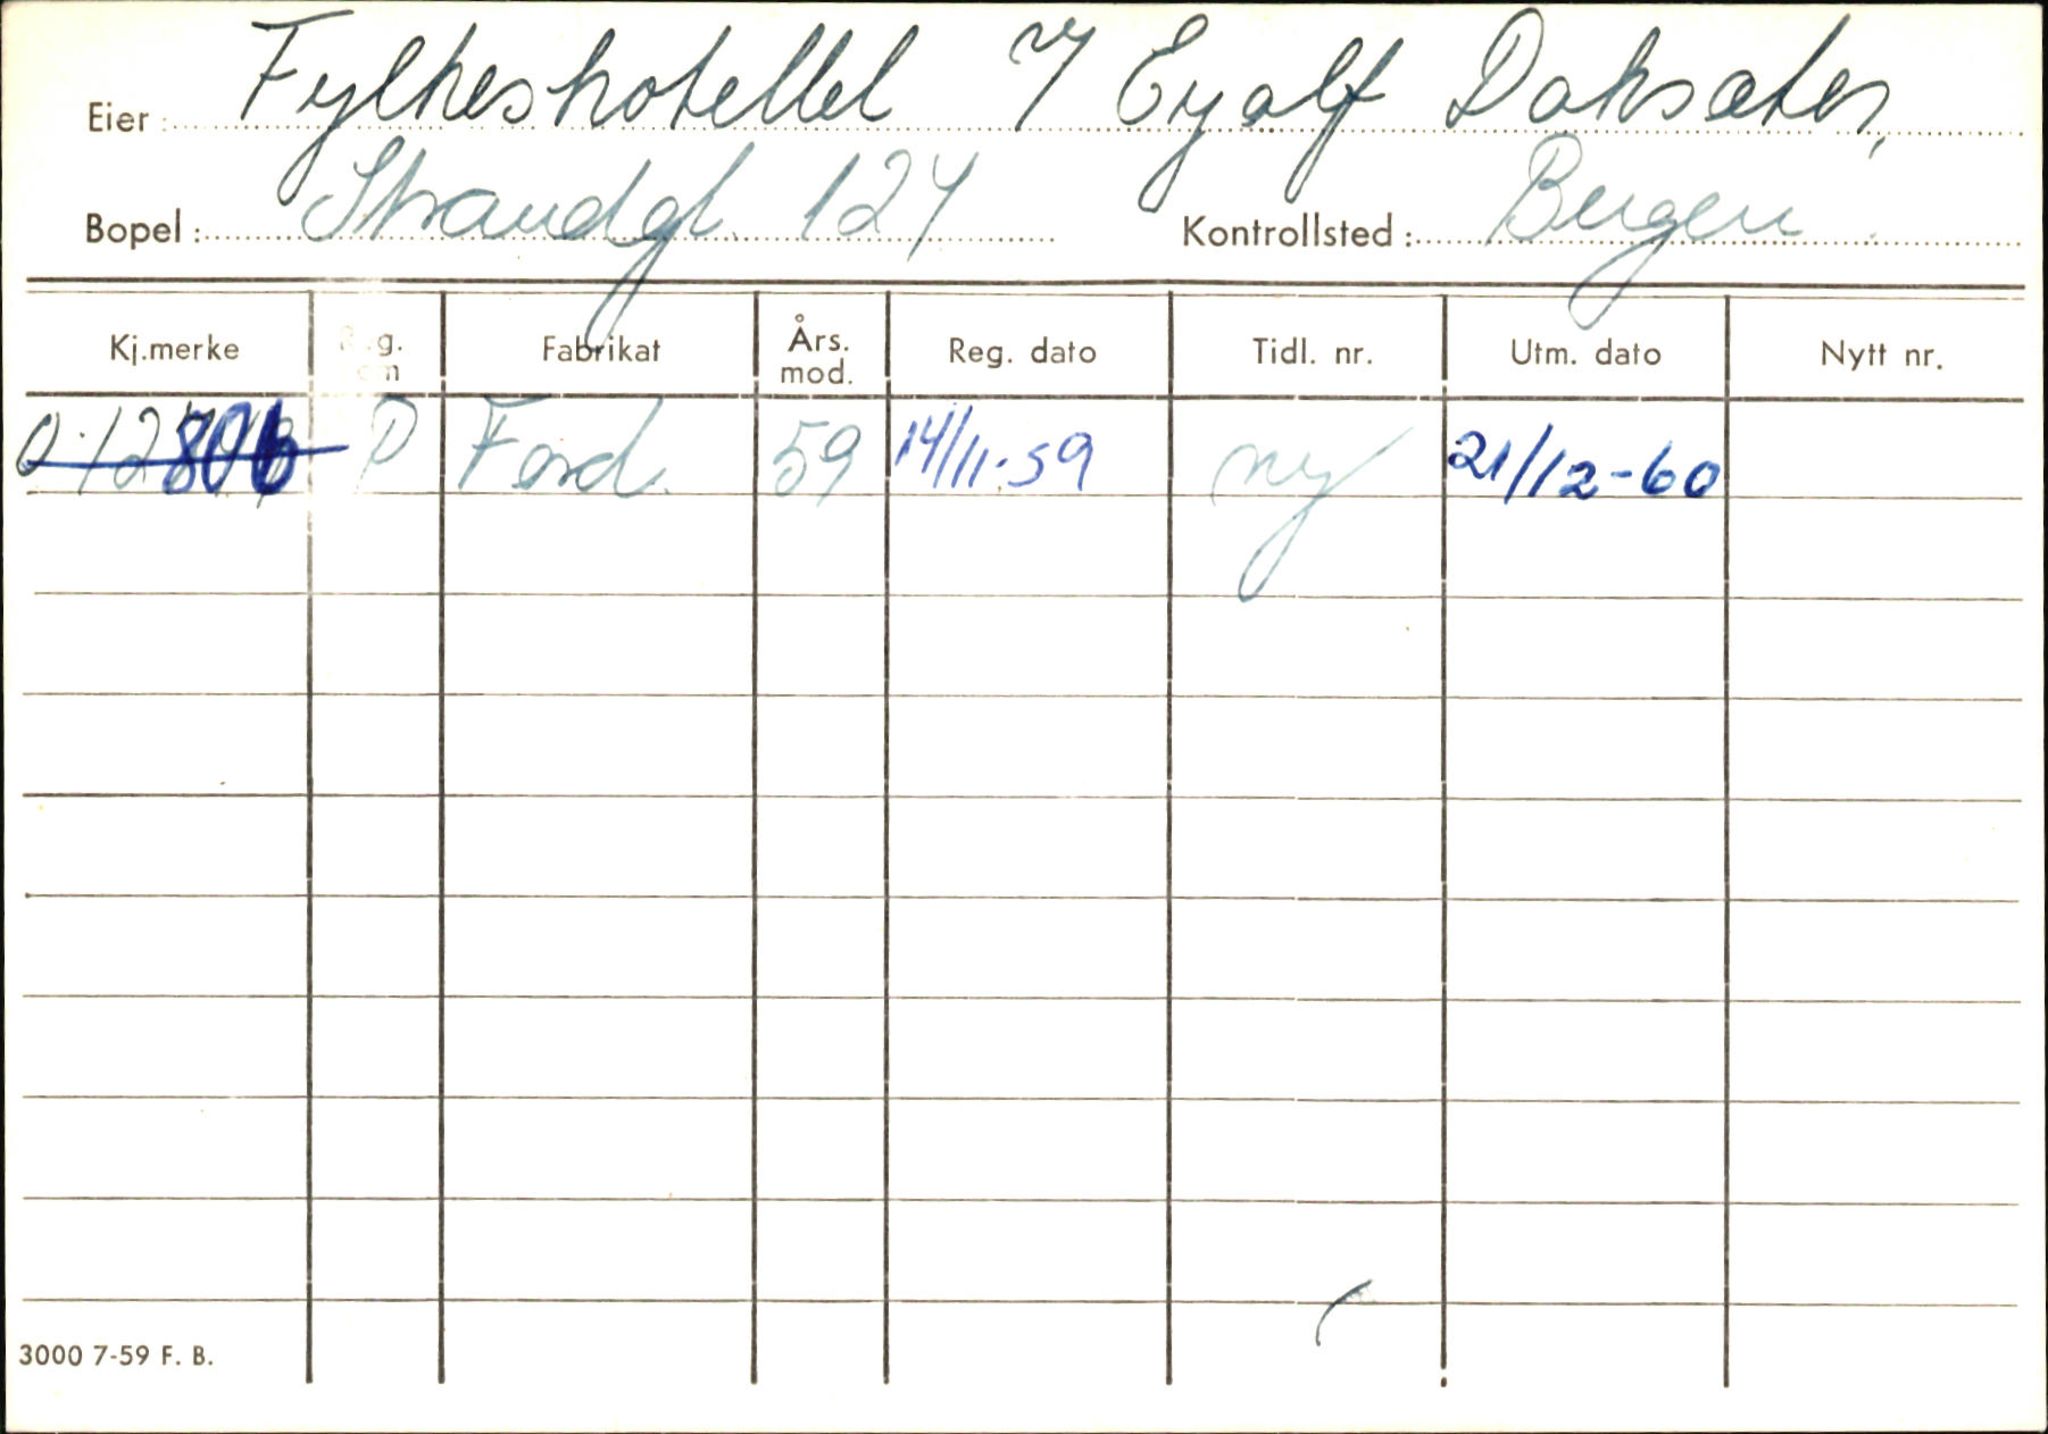 Eier: Fylkeshotellet v/ Eyolf Doksæter,
Bopel: Strandgt. 124 Kontrollsted: Bergen
Kj.merke Reg. om Fabrikat Års. mod. Reg. dato Tidl. nr. Utm. dato Nytt nr.
O-12806 P Ford 59 14/11-59 ny 21/12-60
3000 7-59 F. B.